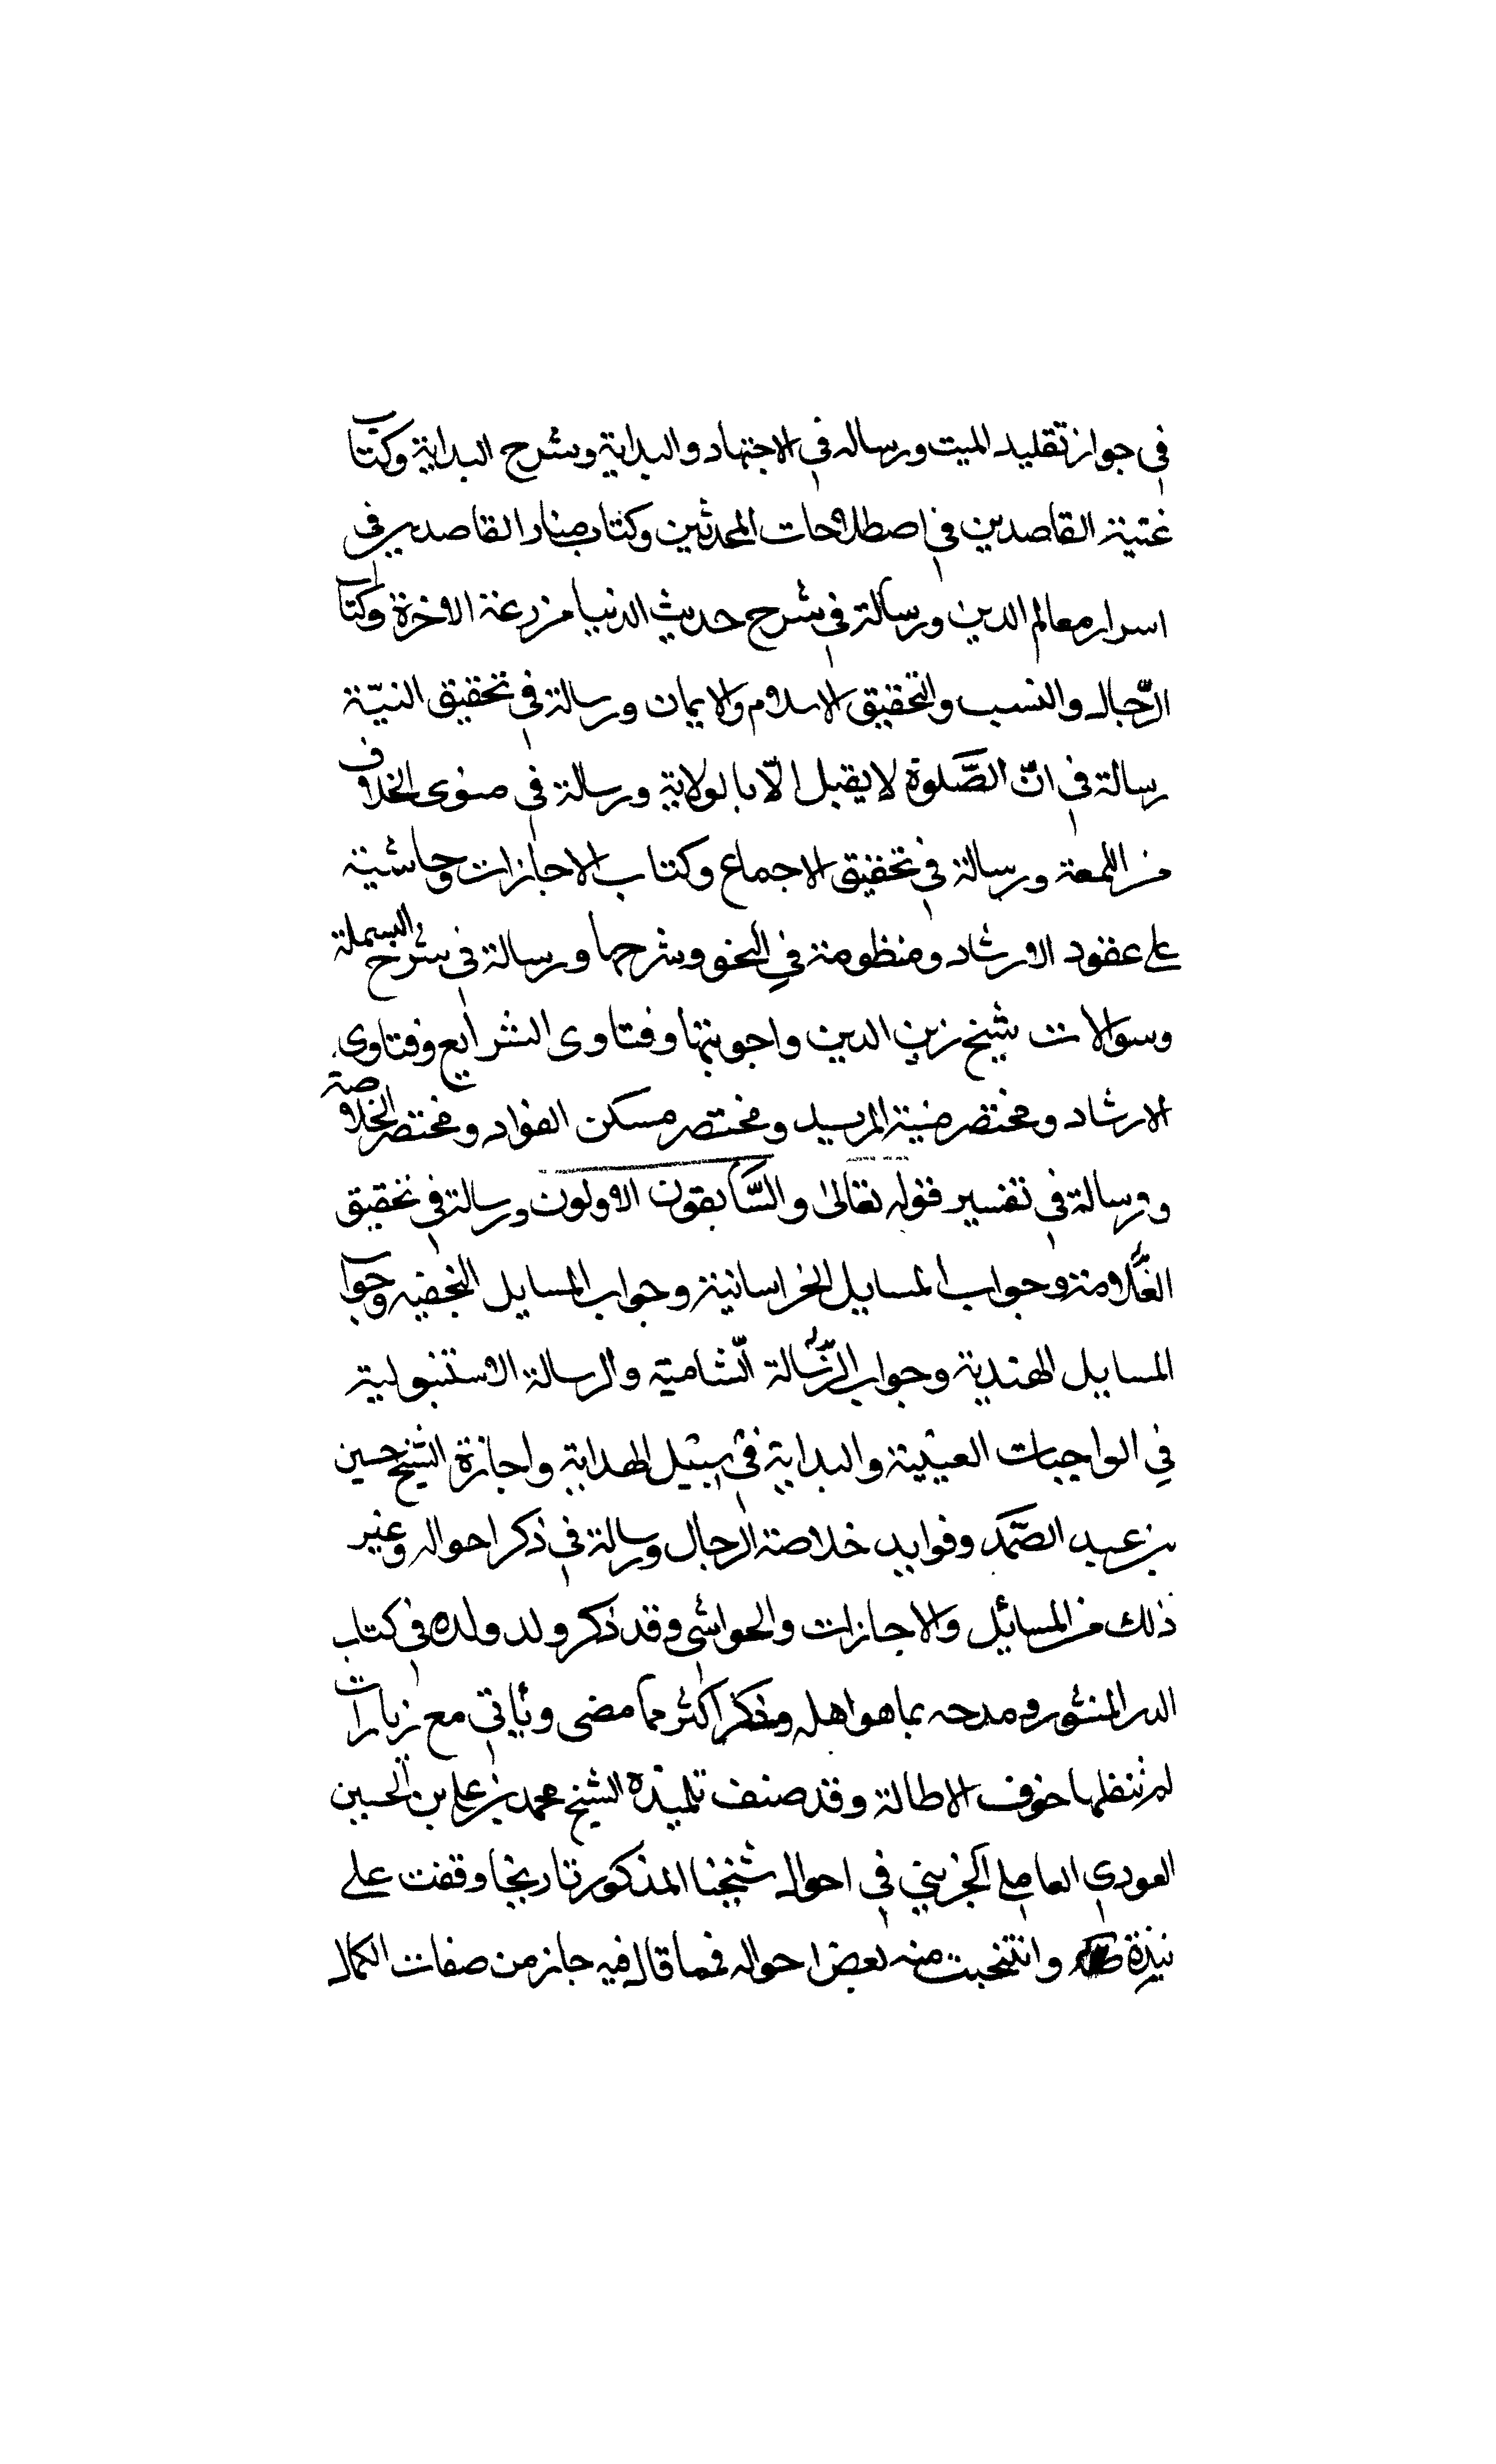 في جواز تقليد الميت ورساله في الاجتهاد والبداية وشرح البداية وكتاب
غنية القاصدين في اصطلاحات المحدثين وكتاب منار القاصدين في
اسرار معالم الدين ورسالة في شرح حديث الدنيا مزرعة الاخرة وكتاب
الرّجال والنسب والتحقيق الاسلام والايمان ورسالة في تحقيق النيّة
رسالة في انّ الصَّلوة لا يقبل الّا بالولاية ورسالة في فتوى الخلاف
من اللمعة ورسالة في تحقيق الاجماع وكتاب الاجازات وحاشية
على عقود الارشاد ومنظومة في النحو وشرحها ورسالة في شرح البسملة
وسوالات شيخ زين الدين واجوبتها وفتاوى الشرايع وفتاوى
الارشاد ومختصر منية المريد ومختصر مسكن الفواد ومختصر الخلاصة
ورسالة في تفسير قوله تعالى والسَّابقون الاولون ورسالة في تحقيق
العَّلامة وجواب المسايل الخراسانية وجواب المسايل النجفيه وجواب
المسايل الهندية وجواب الرِّسالة الشّامية والرسالة الاستنبولية
في الواجبات العينية والبداية في سبيل الهداية واجازة الشيخ حسين
بن عبد الصَّمد وفوايد خلاصة الرجال ورسالة في ذكر احواله وغير
ذلك من المسائل والاجازات والحواشي وقد ذكر ولد ولده في كتاب
الدر المنثور ومدحه بما هو اهله وذكر اكثر مما مضى ويأتي مع زيارات
لم ننقلها خوف الاطالة وقد صنف تلميذه الشيخ محمد بن علي بن الحسين
العودي العاملي الجزيني في احوال شيخنا المذكور تاريخا وقفت على
نبذة وانتخبت منه بعض احواله فمما قال فيه حاز من صفات الكمال